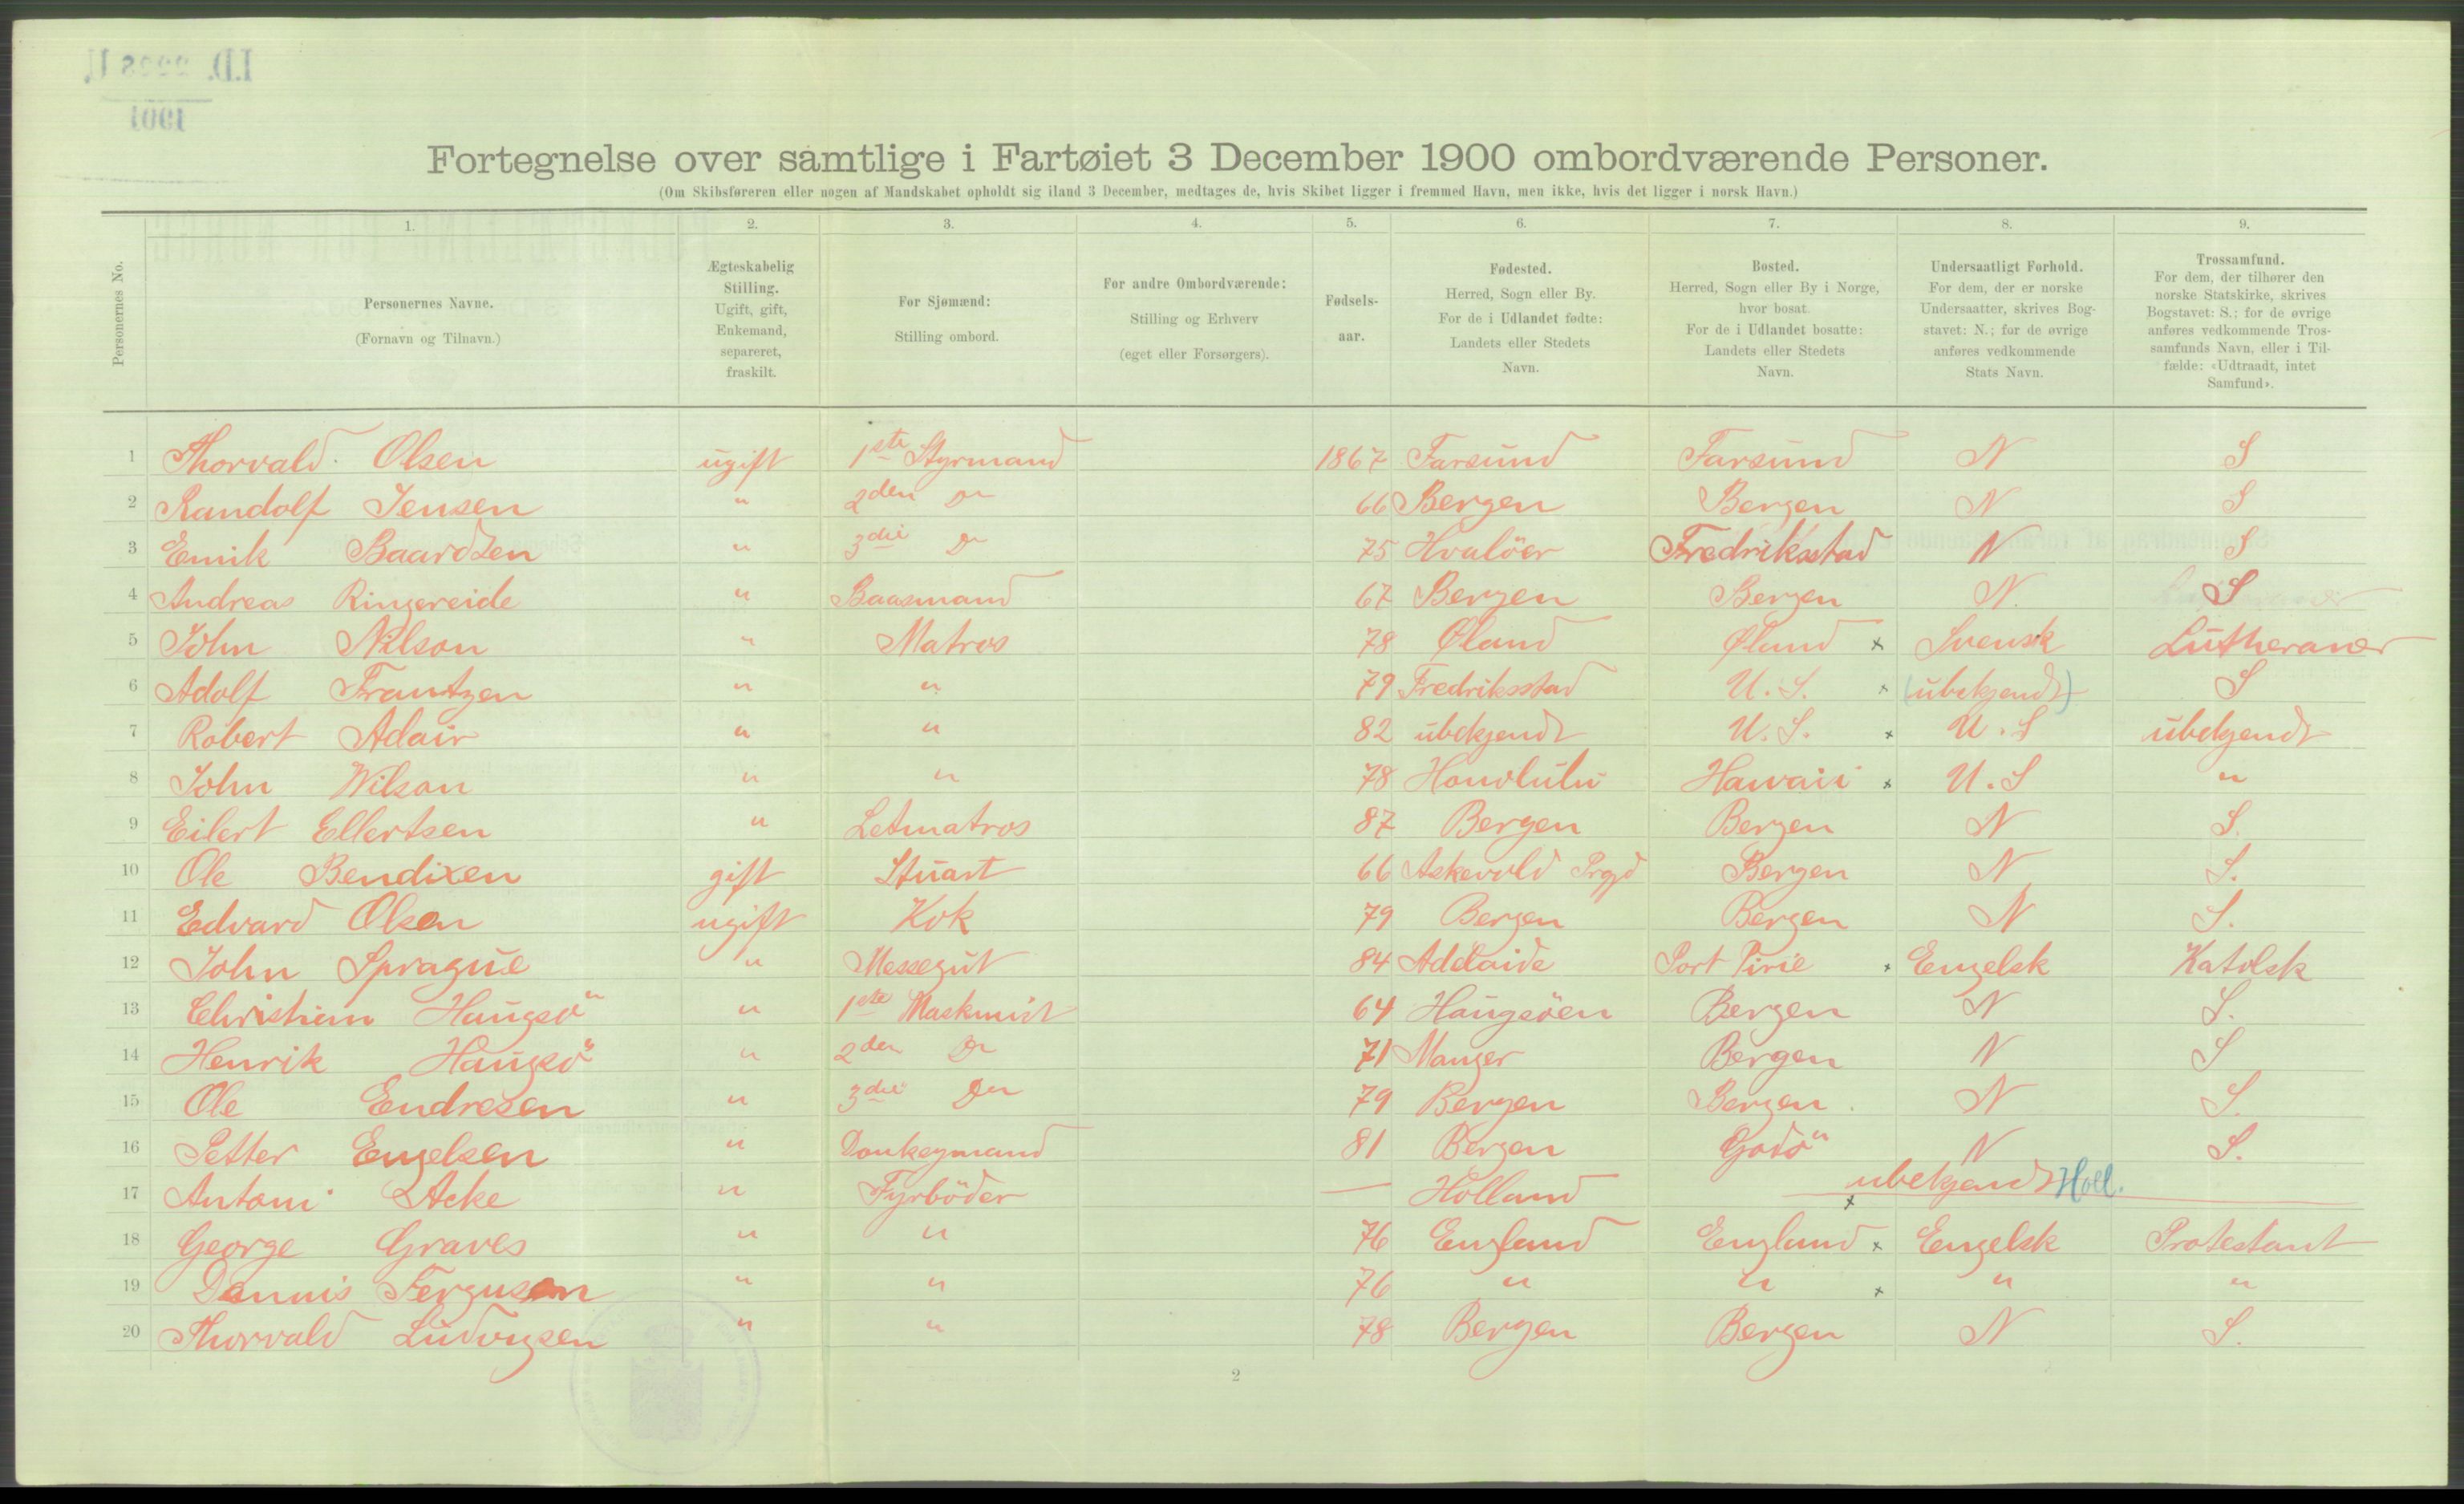 I.D. 2228 U
1901
Fortegnelse over samtlige i Fartøiet 3 December 1900 ombordværende Personer.
(Om Skibsføreren eller nogen af Mandskabet opholdt sig iland 3 December, medtages de, hvis Skibet ligger i fremmed Havn, men ikke, hvis det ligger i norsk Havn.)
Personernes No.
1. 2. 3. 4. 5. 6. 7. 8. 9.
Personernes Navne.
(Fornavn og Tilnavn.)
Ægteskabelig
Stilling.
Ugift, gift,
Enkemand,
separeret,
fraskilt.
For Sjømænd:
Stilling ombord.
For andre Ombordværende:
Stilling og Erhverv
(eget eller Forsørgers).
Fødsels-
aar.
Fødested.
Herred, Sogn eller By.
For de i Udlandet fødte:
Landets eller Stedets
Navn.
Bosted.
Herred, Sogn eller By i Norge,
hvor bosat.
For de i Udlandet bosatte:
Landets eller Stedets
Navn.
Undersaatligt Forhold.
For dem, der er norske
Undersaatter, skrives Bog-
stavet: N.; for de øvrige
anføres vedkommende
Stats Navn.
Trossamfund.
For dem, der tilhører den
norske Statskirke, skrives
Bogstavet: S.; for de øvrige
anføres vedkommende Tros-
samfunds Navn, eller i Til-
fælde: «Udtraadt, intet
Samfund».
1 Thorvald Olsen ugift 1ste Styrmand 1867 Farsund Farsund N S
2 Randolf Jensen " 2den Do 66 Bergen Bergen N S
3 Emik Baardsen " 3die Do 75 Hvalöer Fredriksstad N S
4 Andreas Ringereide " Baasmand 67 Bergen Bergen N. S
5 John Nilson " Matros 78 Øland Øland x Svensk Lutheraner
6 Adolf Frantzen " " 79 Fredriksstad U. S. x (ubekjendt) S
7 Robert Adair " " 82 ubekjendt U. S. x U. S ubekjendt
8 John Wilson " " 78 Honolulu Hawaii x U. S "
9 Eilert Ellertsen " Letmatros 87 Bergen Bergen N S.
10 Ole Bendixen gift Stuart 66 Askevold Prgd Bergen N S.
11 Edvard Olsen ugift Kok 79 Bergen Bergen N S.
12 John Sprague " Messegut 84 Adelaide Port Pirie x Engelsk Katolsk
13 Christian Haugsö " 1ste Maskinist 64 Haugsöen Bergen N S.
14 Henrik Haugsö " 2den Do 71 Manger Bergen N S
15 Ole Endresen " 3die Do 79 Bergen Bergen N S.
16 Petter Engelsen " Donkeymand 81 Bergen Godö N S.
17 Antoni Acke " Fyrböder — Holland x ubekjendt Holl.
18 George Graves " " 76 England England x Engelsk Protestant
19 Dennis Ferguson " " 76 " " x " "
20 Thorvald Ludvigsen " " 78 Bergen Bergen N S.
2